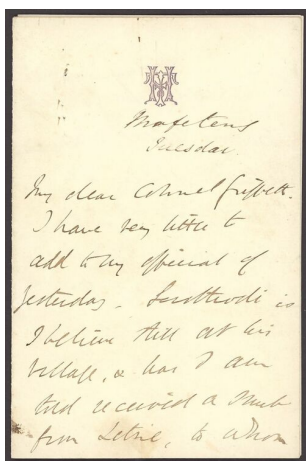 Mafeteng
Tuesday.
My dear Colonel Griffith.
I have very little to
add to my official of
yesterday - Lerothodi is
I believe still at his
village, & has I am
told received a snub
from Letsie, to whom